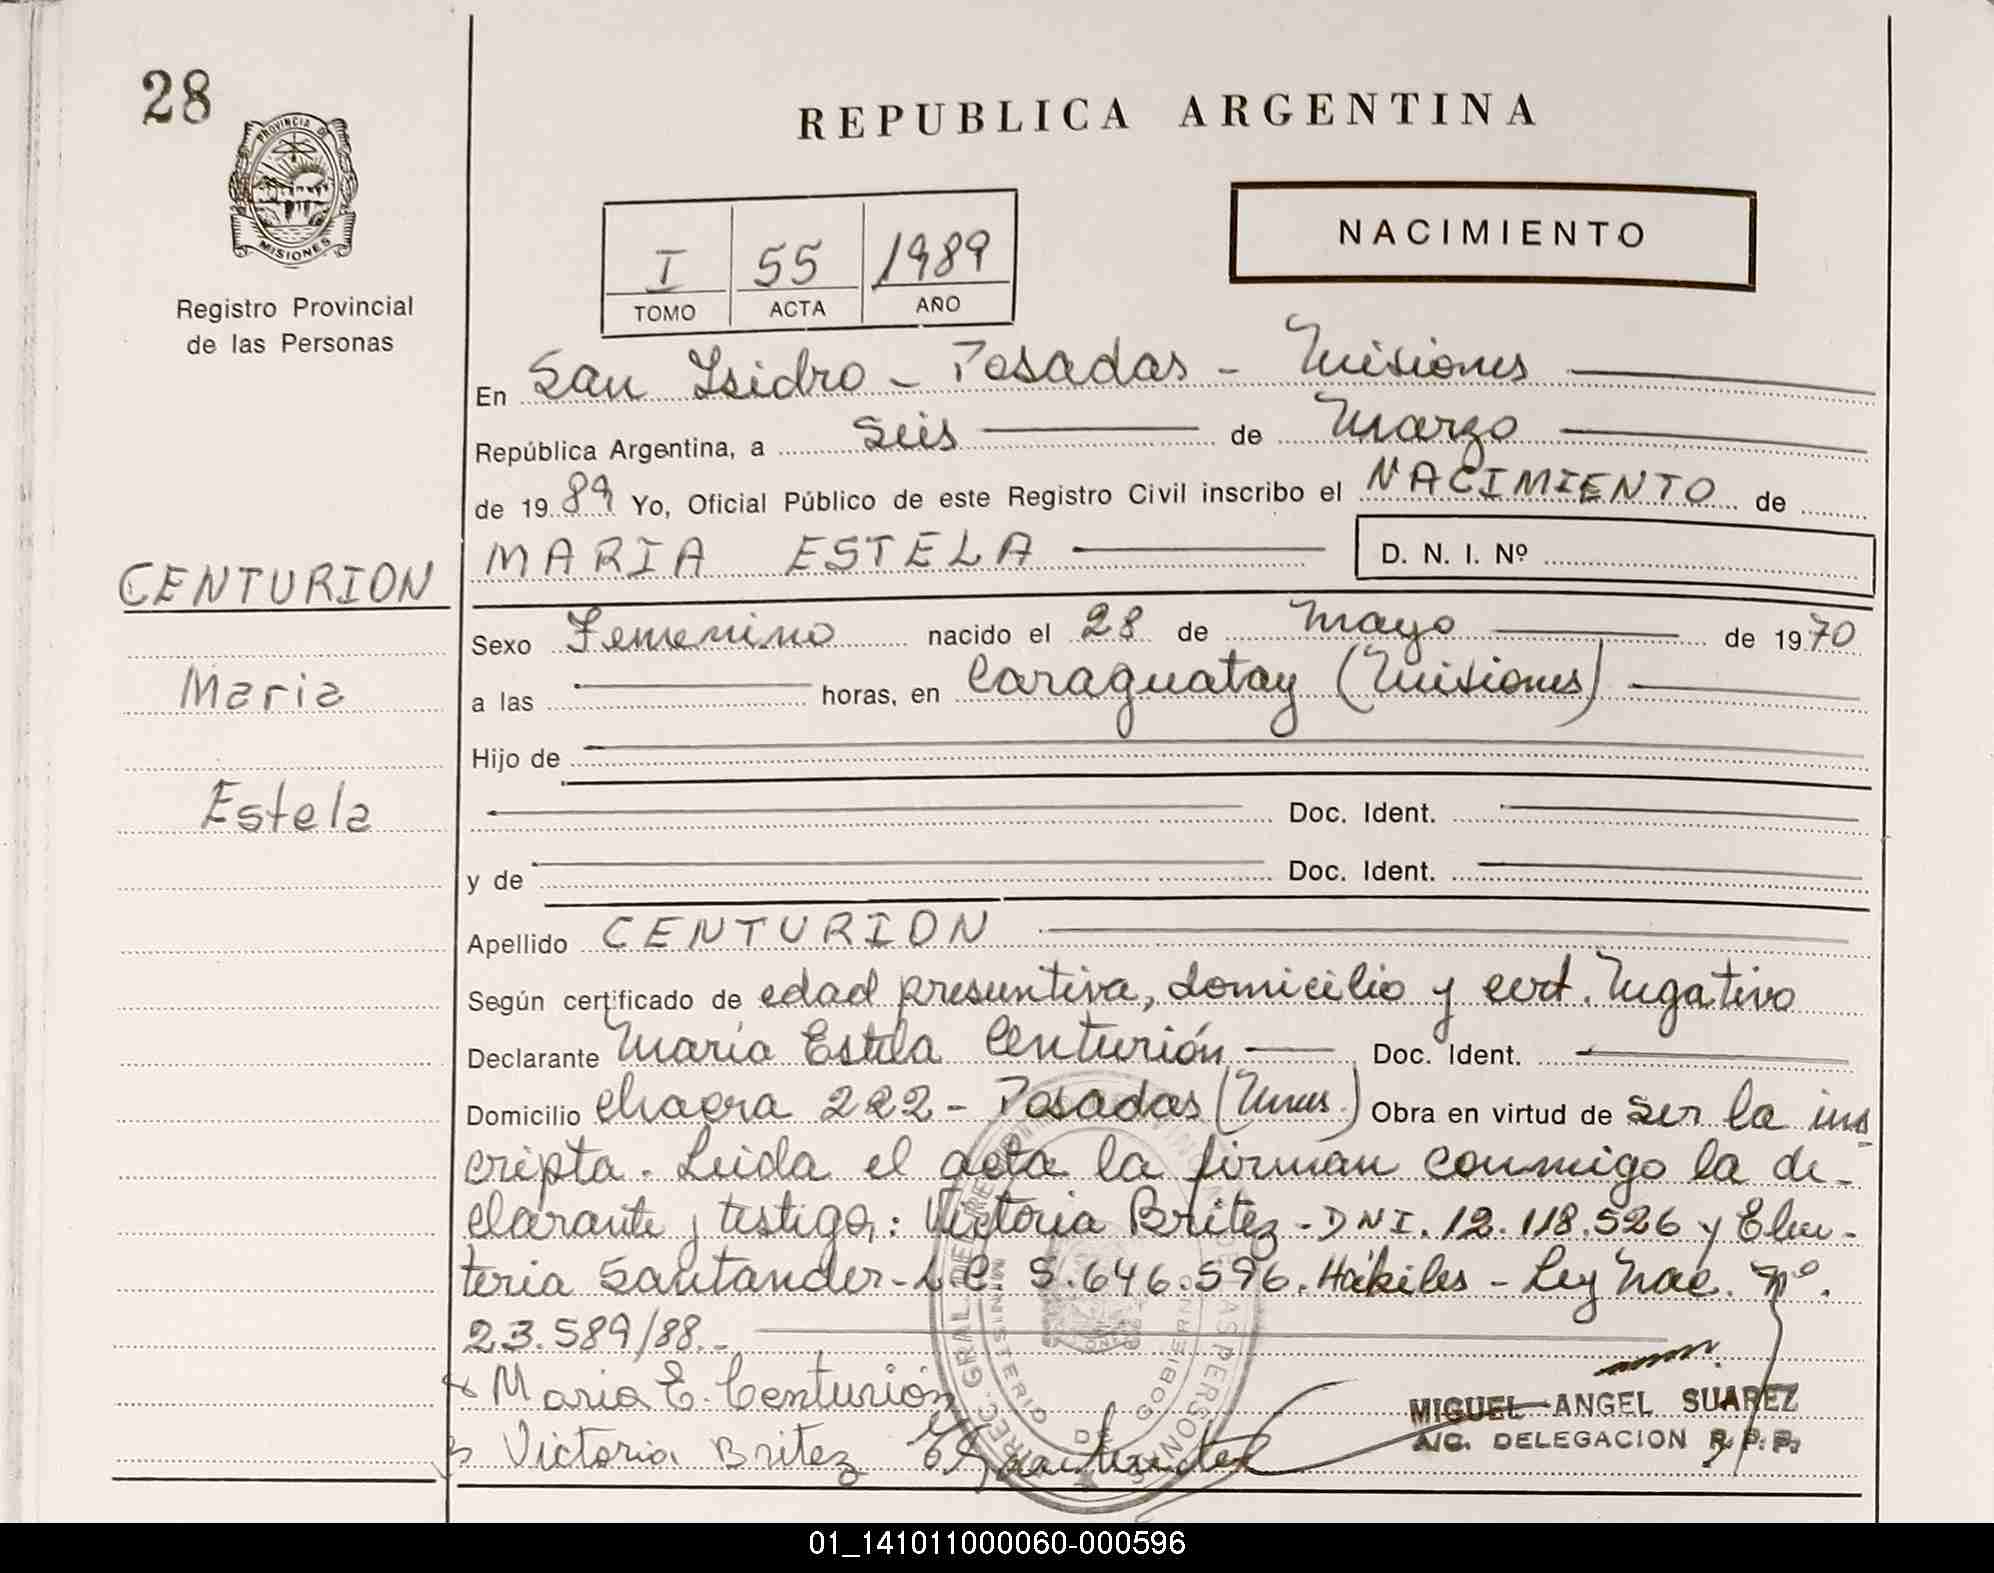 28
PROVINCIA DE
MISIONES
Registro Provincial
de las Personas
REPUBLICA ARGENTINA
I 55 1989
TOMO ACTA AÑO
NACIMIENTO
En San Isidro - Posadas - Misiones
República Argentina, a seis de Marzo
de 1989 Yo, Oficial Público de este Registro Civil inscribo el NACIMIENTO de
MARIA ESTELA D. N. I. Nº
CENTURION
Maria
Estela
Sexo Femenino nacido el 28 de Mayo de 1970
a las horas, en Caraguatay (Misiones)
Hijo de
Doc. Ident.
y de Doc. Ident.
Apellido CENTURION
Según certificado de edad presuntiva, domicilio y cert. Negativo
Declarante María Estela Centurión Doc. Ident.
Domicilio Chacra 222 - Posadas (Mnes.) Obra en virtud de ser la ins
cripta. Leida el acta la firman conmigo la de-
clarante y testigo,: Victoria Britez - DNI. 12.118.526 y Eleu-
teria Santander - L C. 5.646.596. Hábiles - Ley Nac. Nº.
23.589/88.-
Maria E. Centurión
Victoria Britez
MIGUEL ANGEL SUAREZ
A/C. DELEGACION R. P. P.
01_141011000060-000596